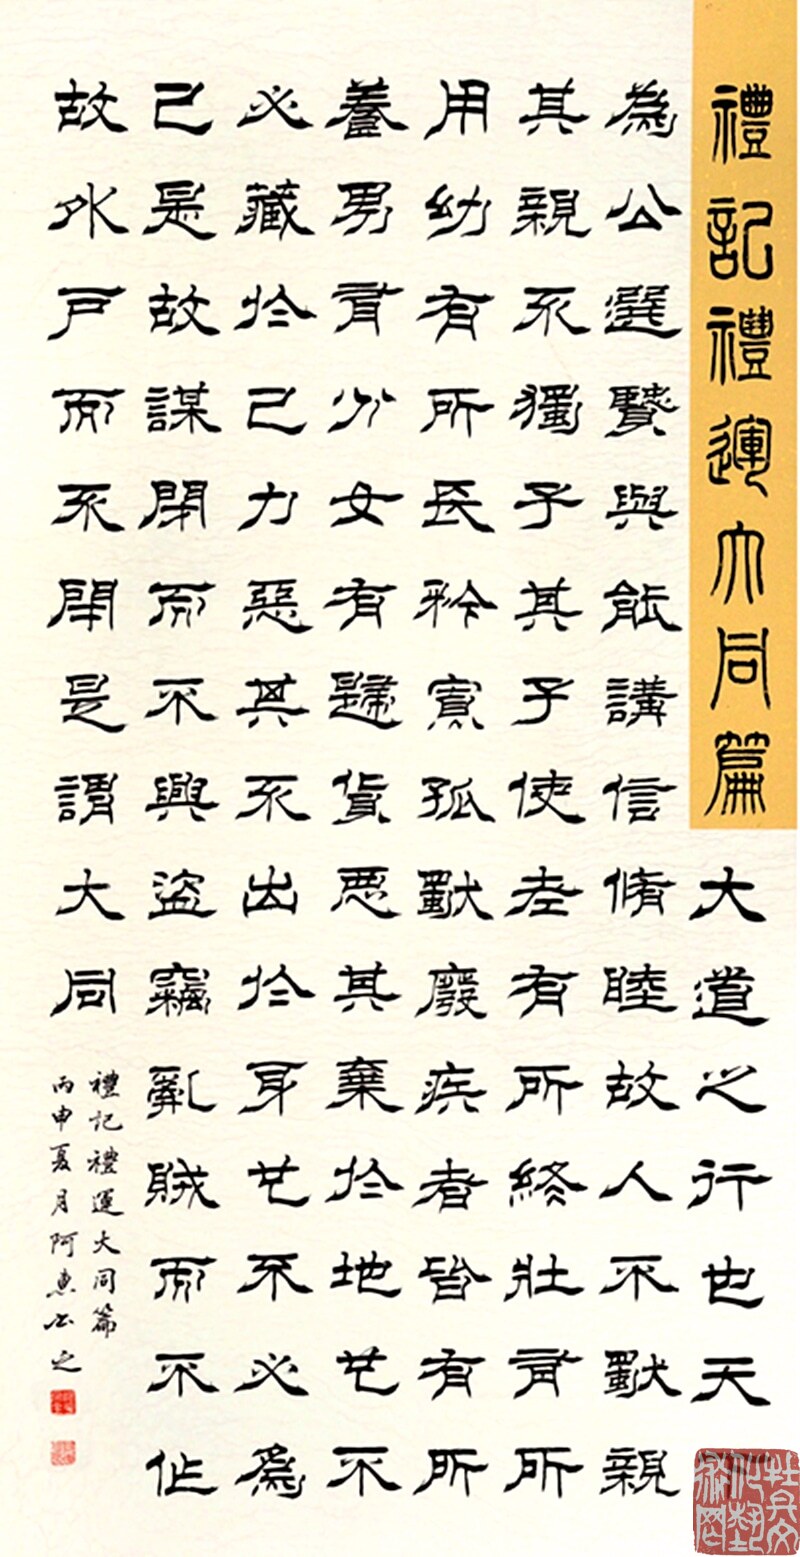 禮記禮運大同篇
大道之行也天
為公選賢與能講信脩睦故人不獨親
其親不獨子其子使老有所終壯有所
用幼有所長矜寡孤獨廢疾者皆有所
養男有分女有歸貨惡其棄於地也不
必藏於己力惡其不出於身也不必為
己是故謀閉而不興盜竊亂賊而不作
故外戶而不閉是謂大同
禮記禮運大同篇
丙申夏月阿惠書之